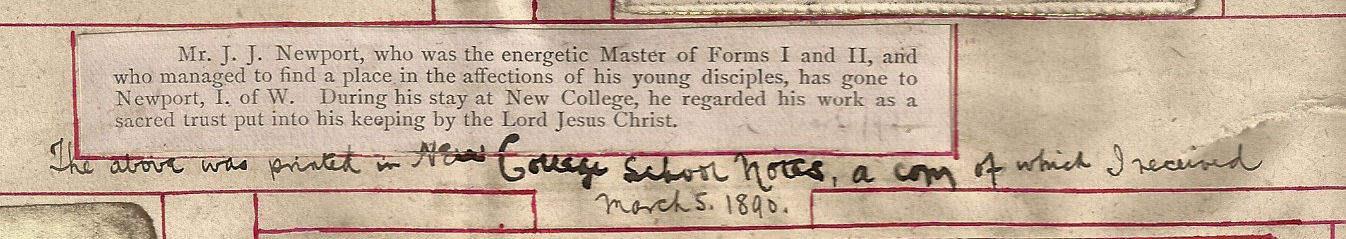 Mr. J. J. Newport, who was the energetic Master of Forms I and II, and
who managed to find a place in the affections of his young disciples, has gone to
Newport, I. of W. During his stay at New College, he regarded his work as a
sacred trust put into his keeping by the Lord Jesus Christ.
The above was printed in New College School Notes, a copy of which I received
March 5. 1890.